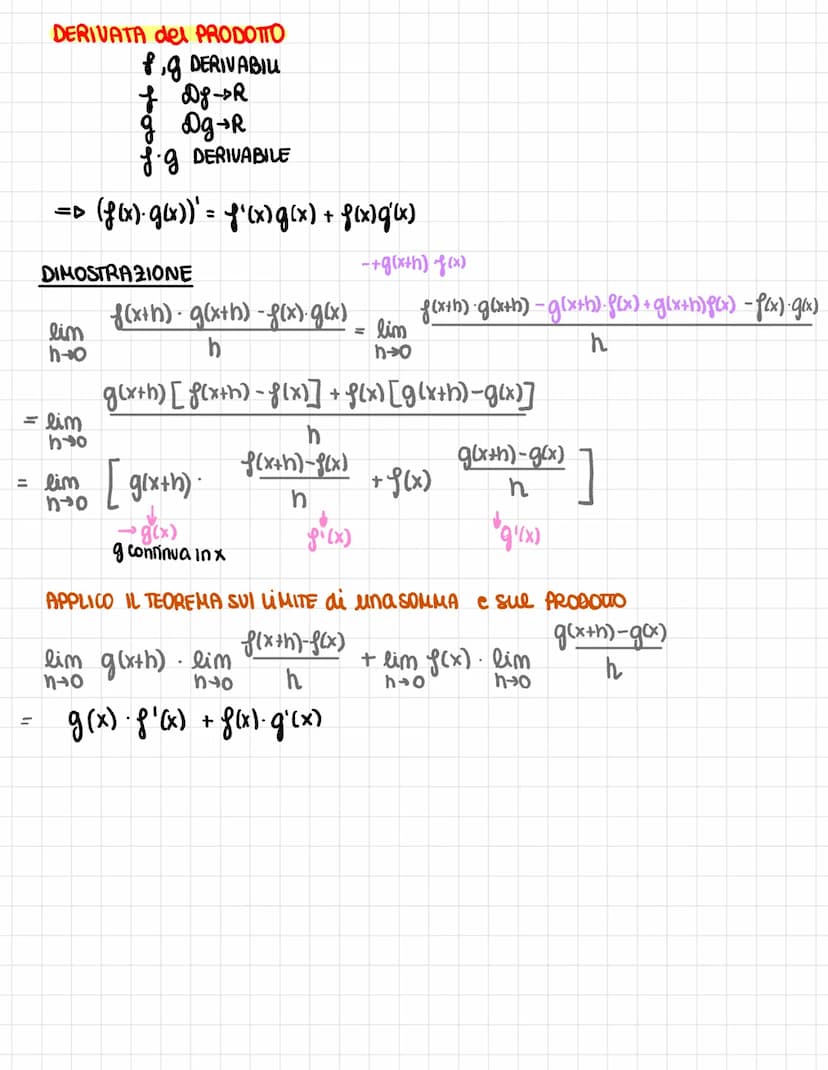 DERIVATA del PRODOTTO
f,g DERIVABILI
f Df→R
g Dg→R
f·g DERIVABILE
=> (f(x)·g(x))' = f'(x)g(x) + f(x)g'(x)
DIMOSTRAZIONE
-+g(x+h) f(x)
lim h→0 f(x+h)·g(x+h)-f(x)·g(x) / h = lim h→0 f(x+h)·g(x+h)-g(x+h)·f(x)+g(x+h)f(x)-f(x)·g(x) / h
= lim h→0 g(x+h)[f(x+h)-f(x)]+f(x)[g(x+h)-g(x)] / h
= lim h→0 [g(x+h)· f(x+h)-f(x) / h + f(x) g(x+h)-g(x) / h]
↓ ↓ ↓
→g(x) f'(x) g'(x)
g continua in x
APPLICO IL TEOREMA SUI LIMITE di una SOMMA e sul PRODOTTO
lim h→0 g(x+h) · lim h→0 f(x+h)-f(x) / h + lim h→0 f(x) · lim h→0 g(x+h)-g(x) / h
= g(x)·f'(x) + f(x)·g'(x)